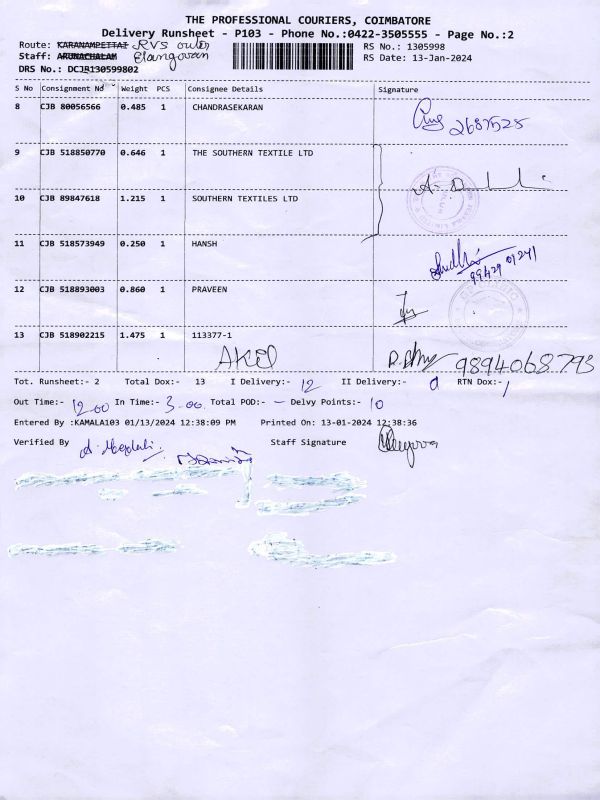 THE PROFESSIONAL COURIERS, COIMBATORE
Delivery Runsheet - P103 - Phone No.:0422-3505555 - Page No.:2
Route: KARANAMPETTAI RVS outer RS No.: 1305998
Staff: ARUNACHALAM Elangovan RS Date: 13-Jan-2024
DRS No.: DCJB130599802
S No Consignment No Weight PCS Consignee Details Signature
8 CJB 80056566 0.485 1 CHANDRASEKARAN
2687525
9 CJB 518850770 0.646 1 THE SOUTHERN TEXTILE LTD
10 CJB 89847618 1.215 1 SOUTHERN TEXTILES LTD
11 CJB 518573949 0.250 1 HANSH
99429 01241
12 CJB 518893003 0.860 1 PRAVEEN
13 CJB 518902215 1.475 1 113377-1
AKIL 9894068793
Tot. Runsheet:- 2 Total Dox:- 13 I Delivery:- 12 II Delivery:- 0 RTN Dox:- 1
Out Time:- 12.00 In Time:- 3.00 Total POD:- - Delvy Points:- 10
Entered By :KAMALA103 01/13/2024 12:38:09 PM Printed On: 13-01-2024 12:38:36
Verified By Staff Signature